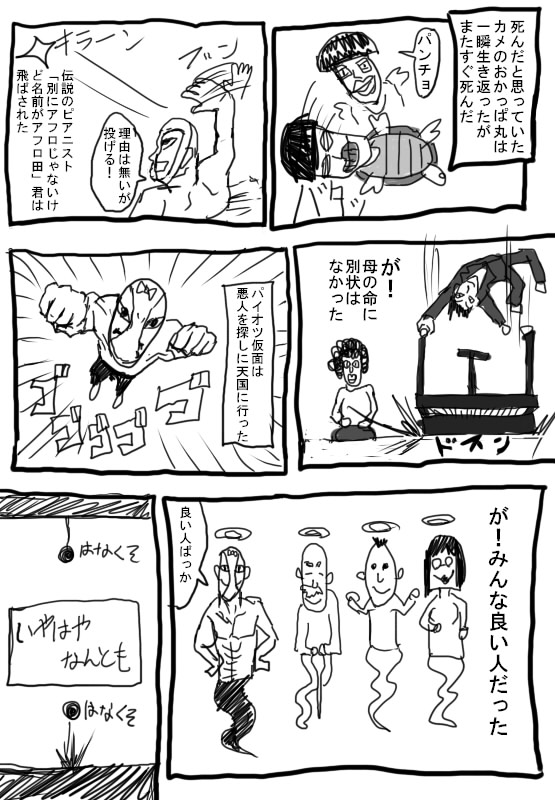 死んだと思っていた
カメのおかっぱ丸は
一瞬生き返ったが
またすぐ死んだ
パンチョ
キラーン
ブン
理由は無いが
投げる!
伝説のピアニスト
「別にアフロじゃないけ
ど名前がアフロ田」君は
飛ばされた
が!
母の命に
別状は
なかった
ドスン
パイオツ仮面は
悪人を探しに天国に行った
ゴゴゴゴゴ
が!みんな良い人だった
良い人ばっか
はなくそ
いやはや
なんとも
はなくそ